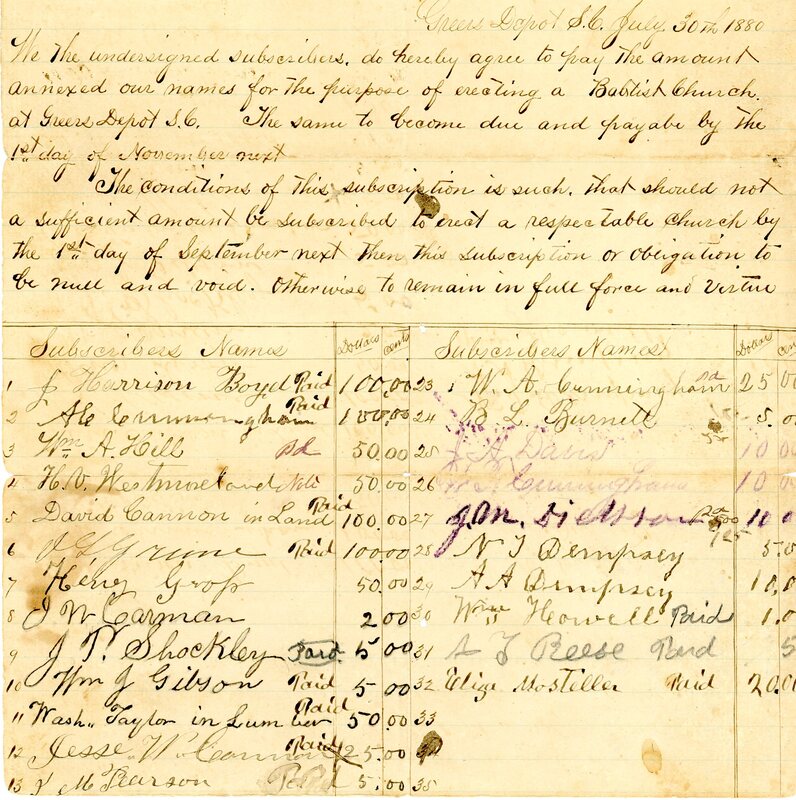 Greers Depot S.C. July 30th 1880
We the undersigned subscribers, do hereby agree to pay the amount
annexed our names for the purpose of erecting a Babtist Church
at Greers Depot S.C. The same to become due and payabe by the
1st day of November next
The conditions of this subscription is such, that should not
a sufficient amount be subscribed to erect a respectable church by
the 1st day of September next then this subscription or obligation to
be null and void. Otherwise to remain in full force and virtue
Subscribers Names Dollars Cents
1 J Harrison Boyd Paid 100.00
2 Cunningham Paid 100.00
3 Wm A. Hill pd 50.00
4 H. V. Westmoreland Note 50.00
5 David Cannon in Land Paid 100.00
6 Paid 100.00
7 Henry Gross 50.00
8 J W Carman 2.00
9 J. T. Shockley Paid 5.00
10 Wm J Gibson Paid 5.00
11 "Wash" Taylor in Lumber Paid 50.00
12 Jesse W. Cannon Paid 25.00
13 McPearson Paid 5.00
Subscribers Names Dollars Cen
23 W. A. Cunningham pd 25 00
24 B L Burnett 5.0
25 J A David 10 00
26 Cunningham 10 00
27 J.M. Dickson Pd 10 0
28 N J Dempsey 5.0
29 A A Dempsey 10.0
30 Wm Howell Paid 1.0
31 A J Reese Paid 5
32 Elize Mosteller Paid 20.00
33
34
35